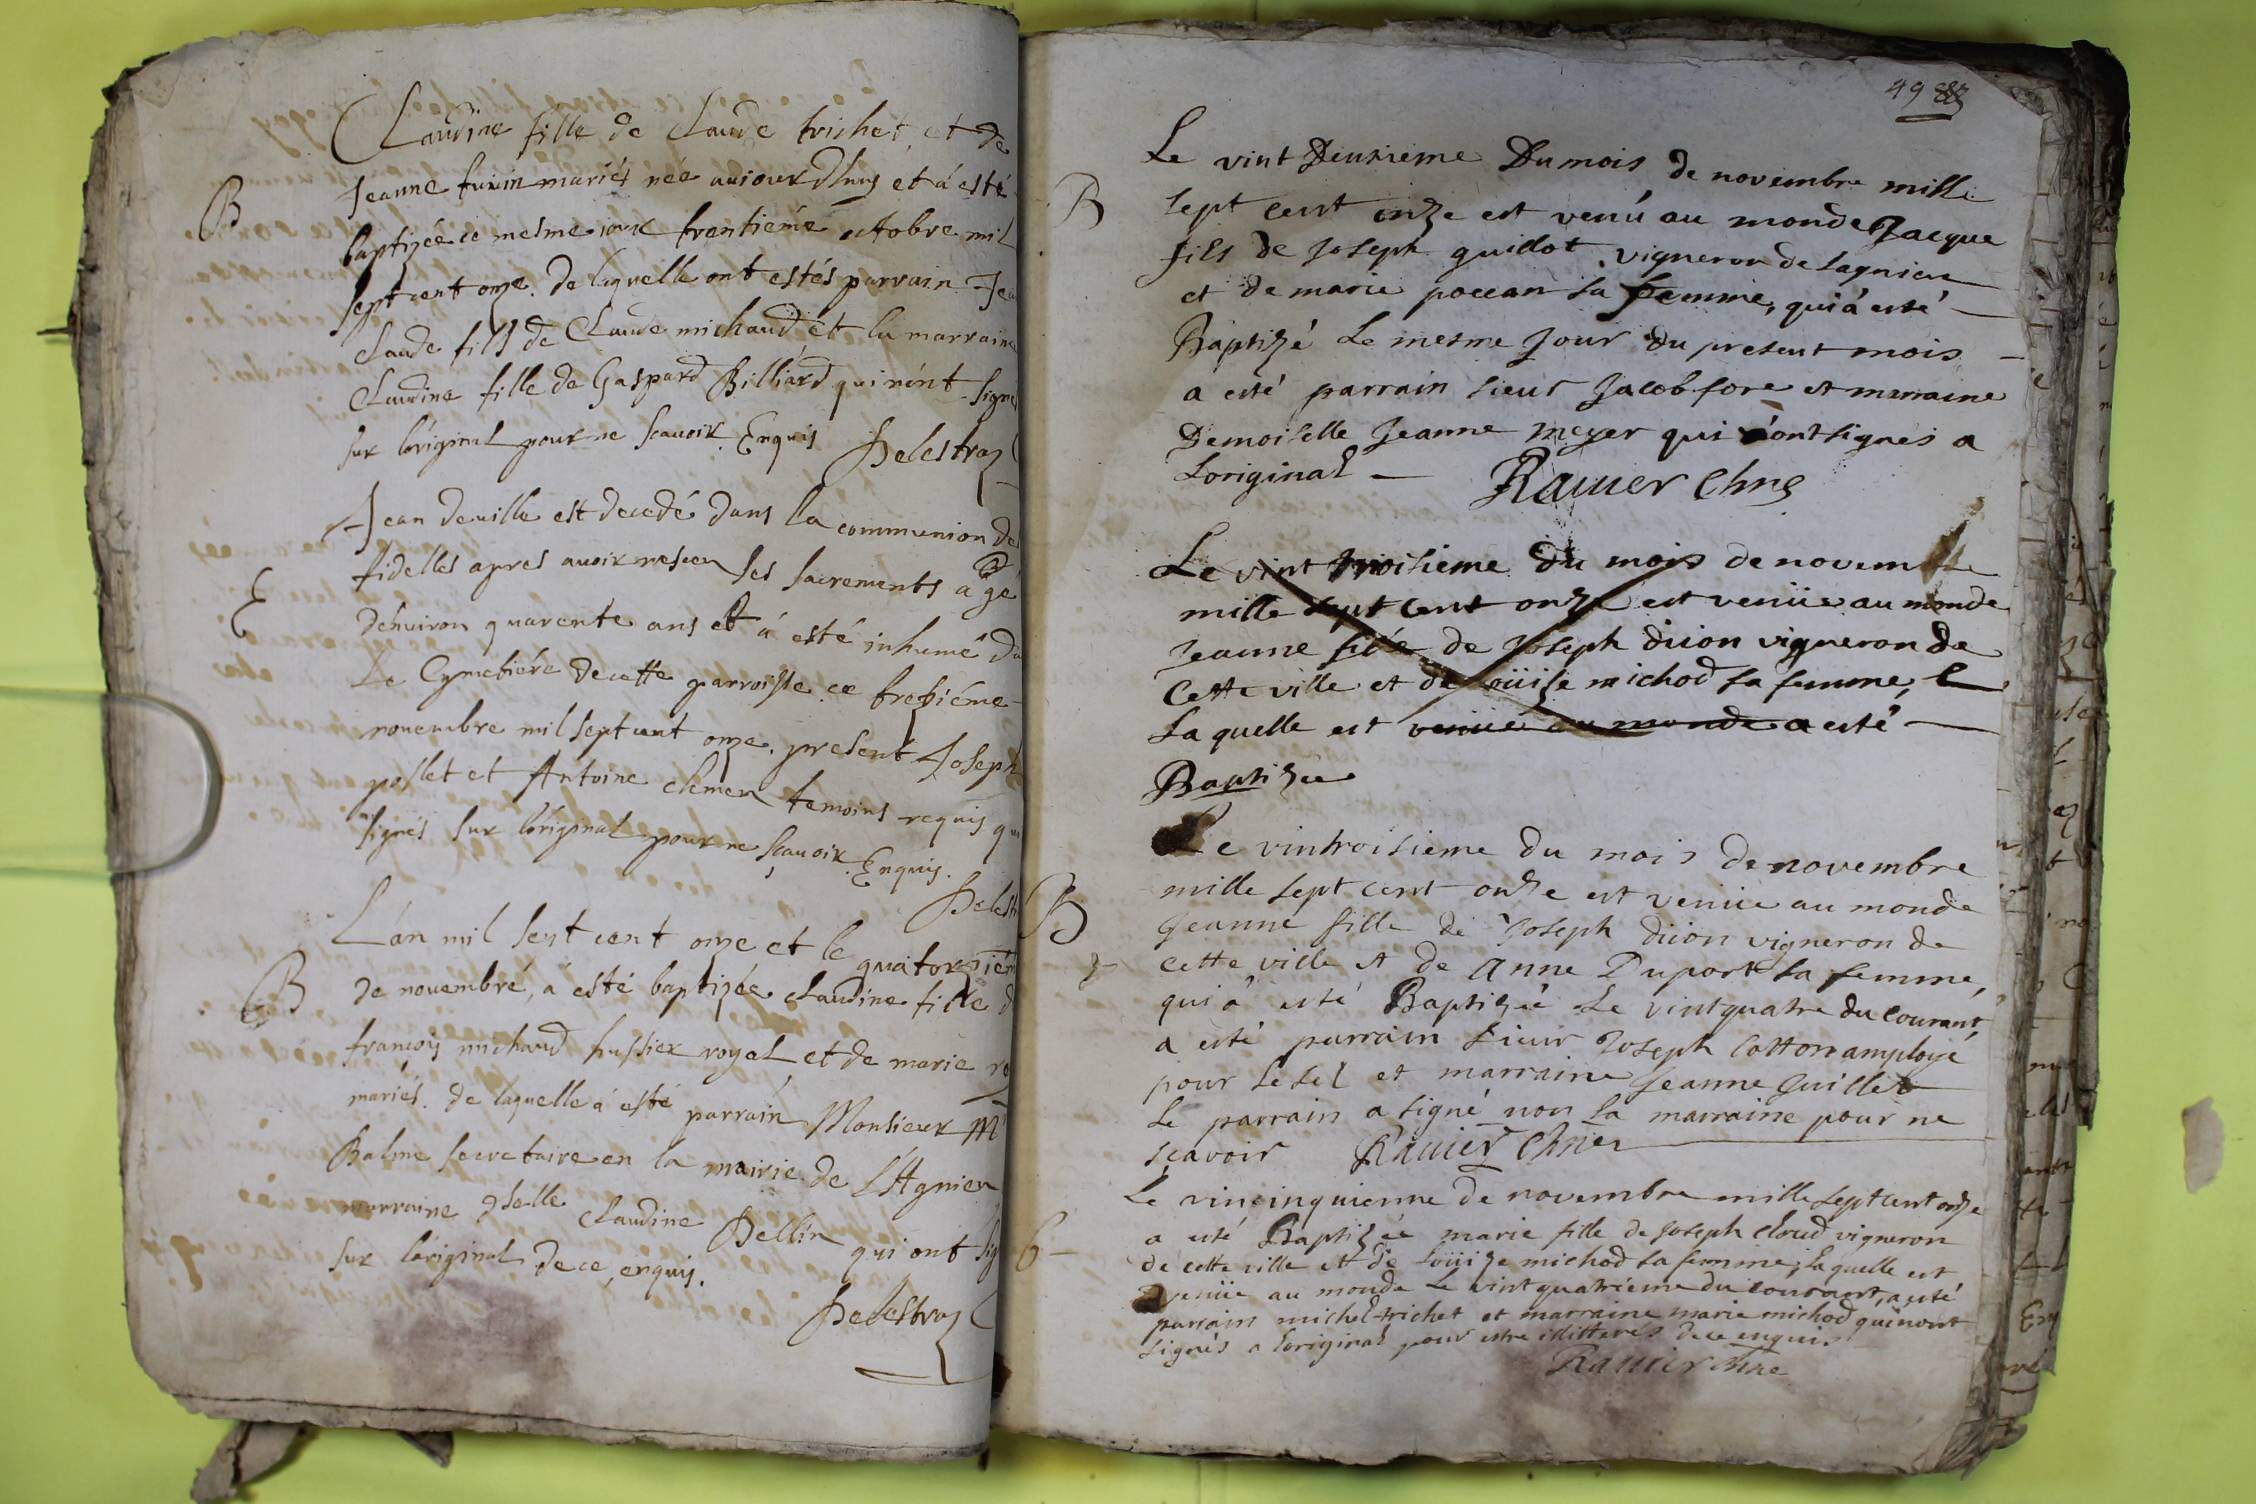 Claudine fille de Claude trichet, et de
B
Jeanne mariés née auiourdhuy et á esté
baptizée ce mesme iour trentiéme octobre mil
sept cent onze. de laquelle ont estés parrain Jea
Claude fils de Claude michaud, et la marraine
Claudine fille de Gaspard Billiard qui n'ont signé
sur l'original pour ne scauoir. Enquis Delestraz
Jean deuille est decedé dans la communion de
fidelles apres auoir receu ses sacrements agé
E
d'enuiron quarente ans et á esté inhumé d
Le Cymetiére de cette parroisse ce treziéme
nouembre mil sept cent onze. present Joseph
poslet et Antoine clemen temoins requis qu
signés sur l'original pour ne sçauoir. Enquis.
Delest
L'án mil sept cent onze et le quatorziém
B
de nouembré, á esté baptizée claudine fille d
françois michaud hussier royal et de marie ro
mariés. de laquelle á esté parrain Monsieur Mr
Balme secretaire en la mairie de L'Agnieu
marraine dselle claudine Bellin qui ont sig
sur l'original de ce enquis.
Delestraz
49
Le vint Deuxieme Du mois de novembre mille
B
sept cent onze est venú au monde Jacque
fils de Joseph guillot vigneron de lagnieu
et de marie poccan sa femme, qui á esté
Baptizé Le mesme Jour du present mois
a esté parrain sieur Jacob fore et marraine
Demoiselle Jeanne meyer qui ont signés a
Loriginal Rauier Chne
Le vint troisieme du mois de novembre
mille sept cent onze est venüe au monde
Jeanne fille de Joseph diion vigneron de
Cette ville et de Loüize michod sa femme,
La quelle est venüe au monde a esté
Baptizée
Le vintroisieme du mois de novembre
mille sept cent onze est venüe au monde
B
Jeanne fille de Joseph diion vigneron de
cette ville et de Anne Duport sa femme,
qui á esté Baptizée Le vintquatre du Courant,
a esté parrain Sieur Joseph Cotton amployé
pour le sel et marraine Jeanne Juillet
Le parrain a signé non La marraine pour ne
sçavoir Rauier Chne
Le vincinquienne de novembre mille sept cent onze
a esté Baptizée marie fille de Joseph Cloud vigneron
6
de cette ville et de Loüize michod sa femme, laquelle est
venüe au monde Le vint quatriéme du courant, a esté
parrain michel trichet et marraine marie michod qui n'ont
signés a Loriginal pour estre illitterés de ce enquis
Rauier Chne